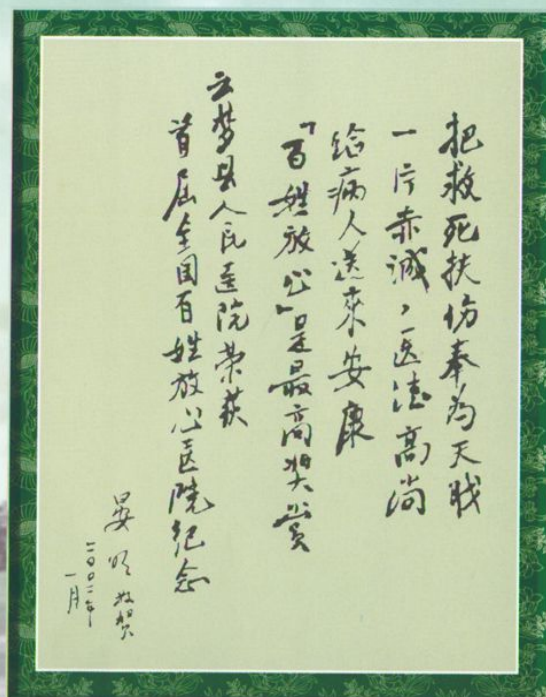 把救死扶伤奉为天职
一片赤诚，医德高尚
给病人送來安康
「百姓放心」是最高奖赏
云梦县人民医院荣获
首届全国百姓放心医院纪念
晏明敬贺
二〇〇二年
一月